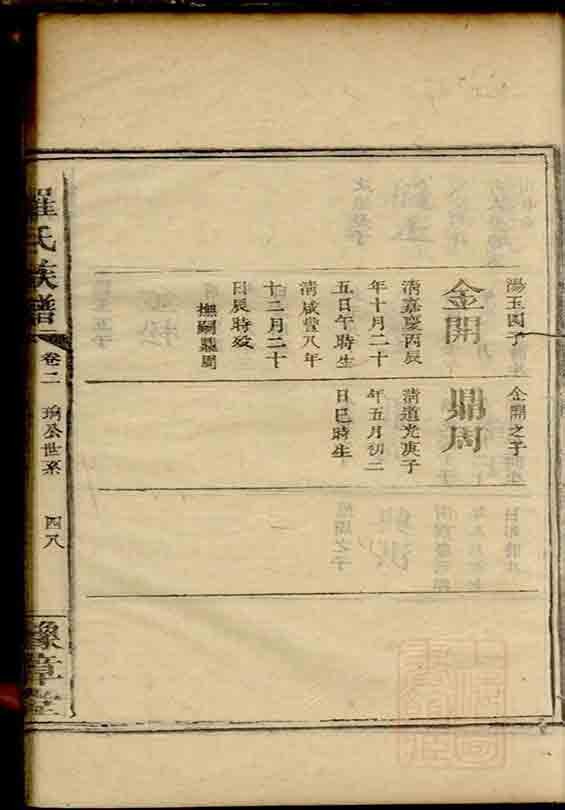 陽玉因子
金開
清嘉慶丙辰
年十月二十
五日午時生
清咸豐八年
十二月二十
日辰時歿
撫嗣鼎周
金開之子
鼎周
清道光庚子
年五月初二
日巳時生
羅氏族譜
卷二
珦公世系
四八
豫章堂